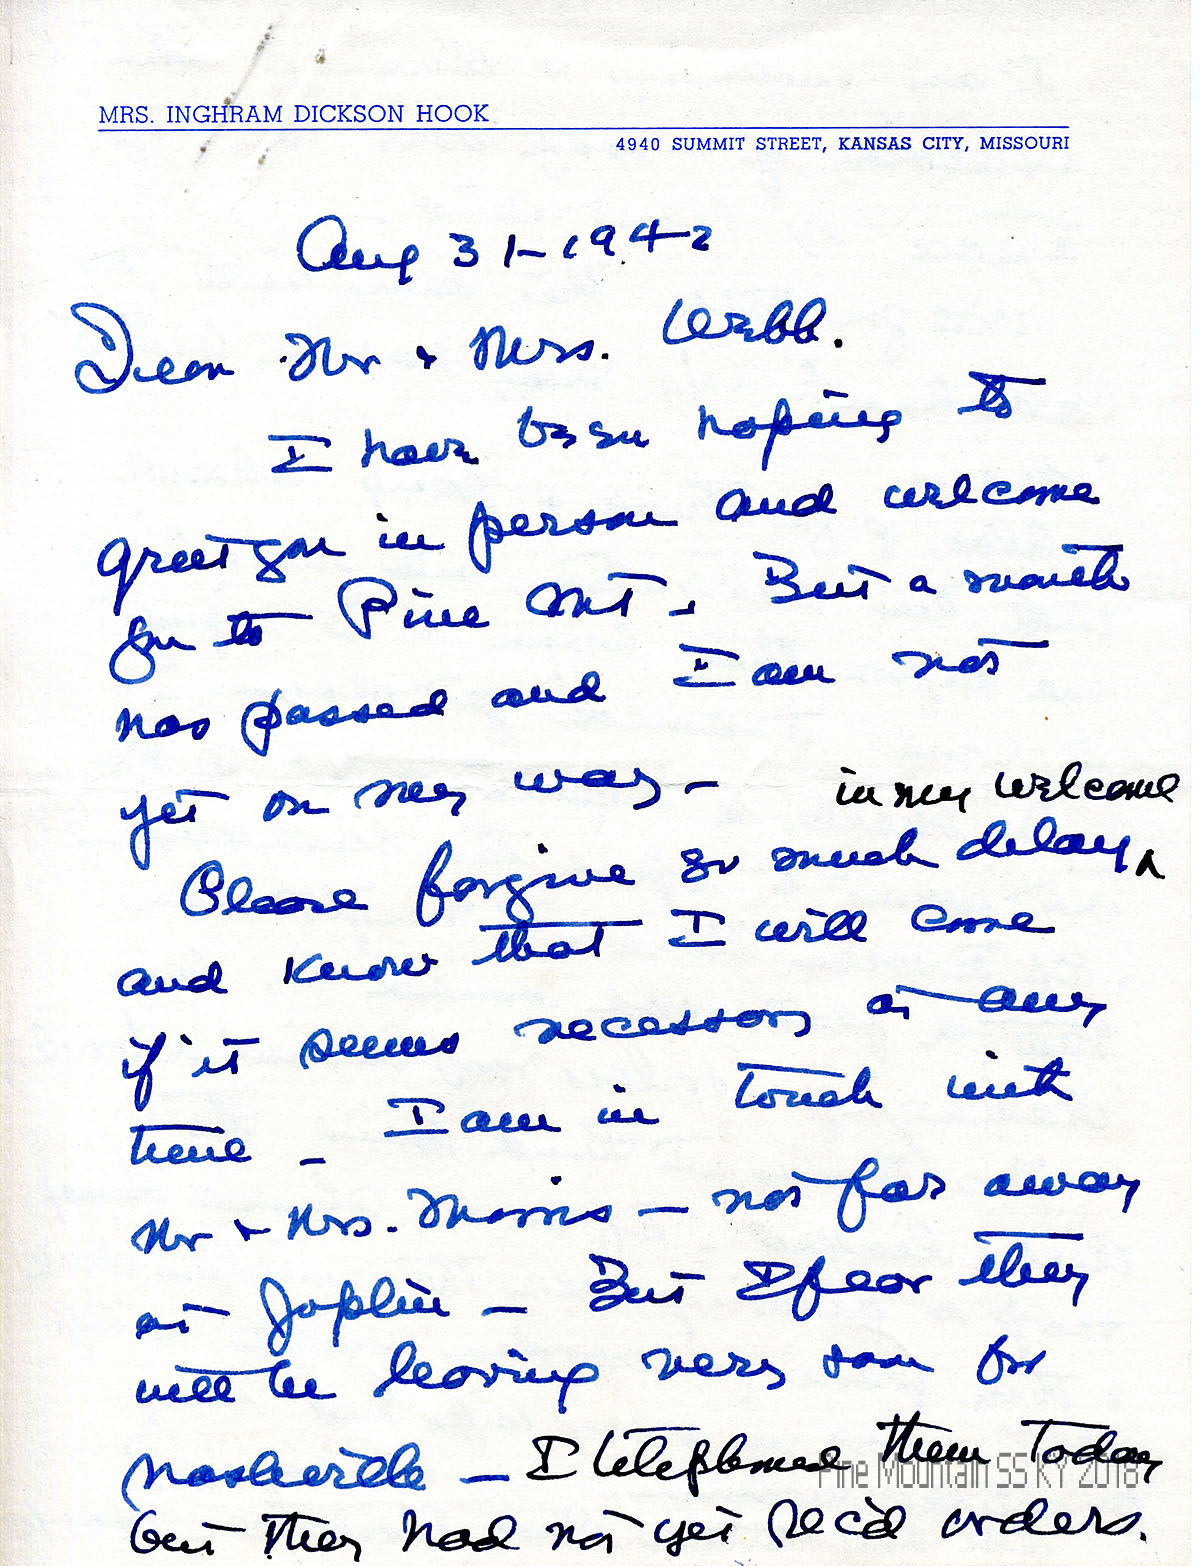 MRS. INGHRAM DICKSON HOOK
4940 SUMMIT STREET, KANSAS CITY, MISSOURI
Aug 31-1942
Dear Mr & Mrs. Webb.
I have been hoping to
greet you in person and welcome
you to Pine Mt - But a month
has passed and I am not
yet on my way -
in my welcome
Please forgive so much delay ^
and know that I will come
if it seems necessary at any
time - I am in touch with
Mr & Mrs. Morris - not far away
at Joplin - But I fear they
will be leaving very soon for
Nashville - I telephoned them today
Pine Mountain SS KY 2018
but they had not yet rec'd orders.